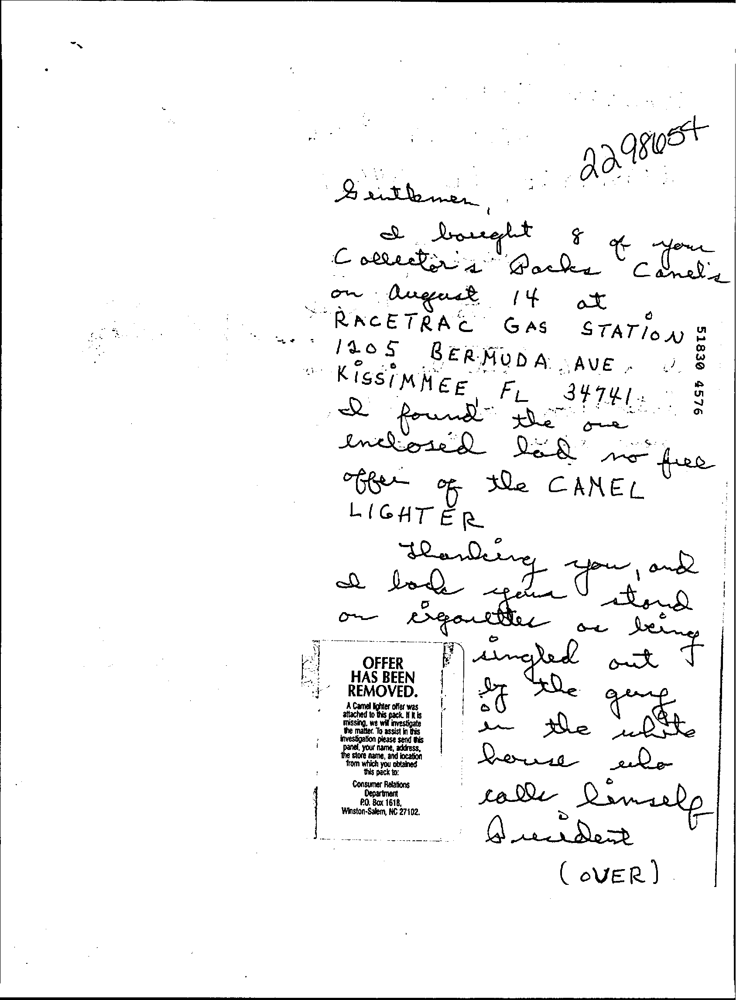 22981054
Gentlemen,
I bought 8 of your
Collector's Packs Camel's
on August 14 at
RACETRAC GAS STATION
1205 BERMUDA AVE
KISSIMMEE, FL 34741
I found the one
enclosed had no free
offer of the CAMEL
LIGHTER
Thanking you, and
I back your stand
on cigarettes as being
singled out
by the
in the white
house who
calls himself
President
(OVER)
OFFER
HAS BEEN
REMOVED.
A Camel lighter offer was
attached to this pack. If it is
missing, we will investigate
the matter. To assist in this
investigation please send this
panel, your name, address,
the store name, and location
from which you obtained
this pack to:
Consumer Relations
Department
P.O. Box 1618,
Winston-Salem, NC 27102.
51830 4576